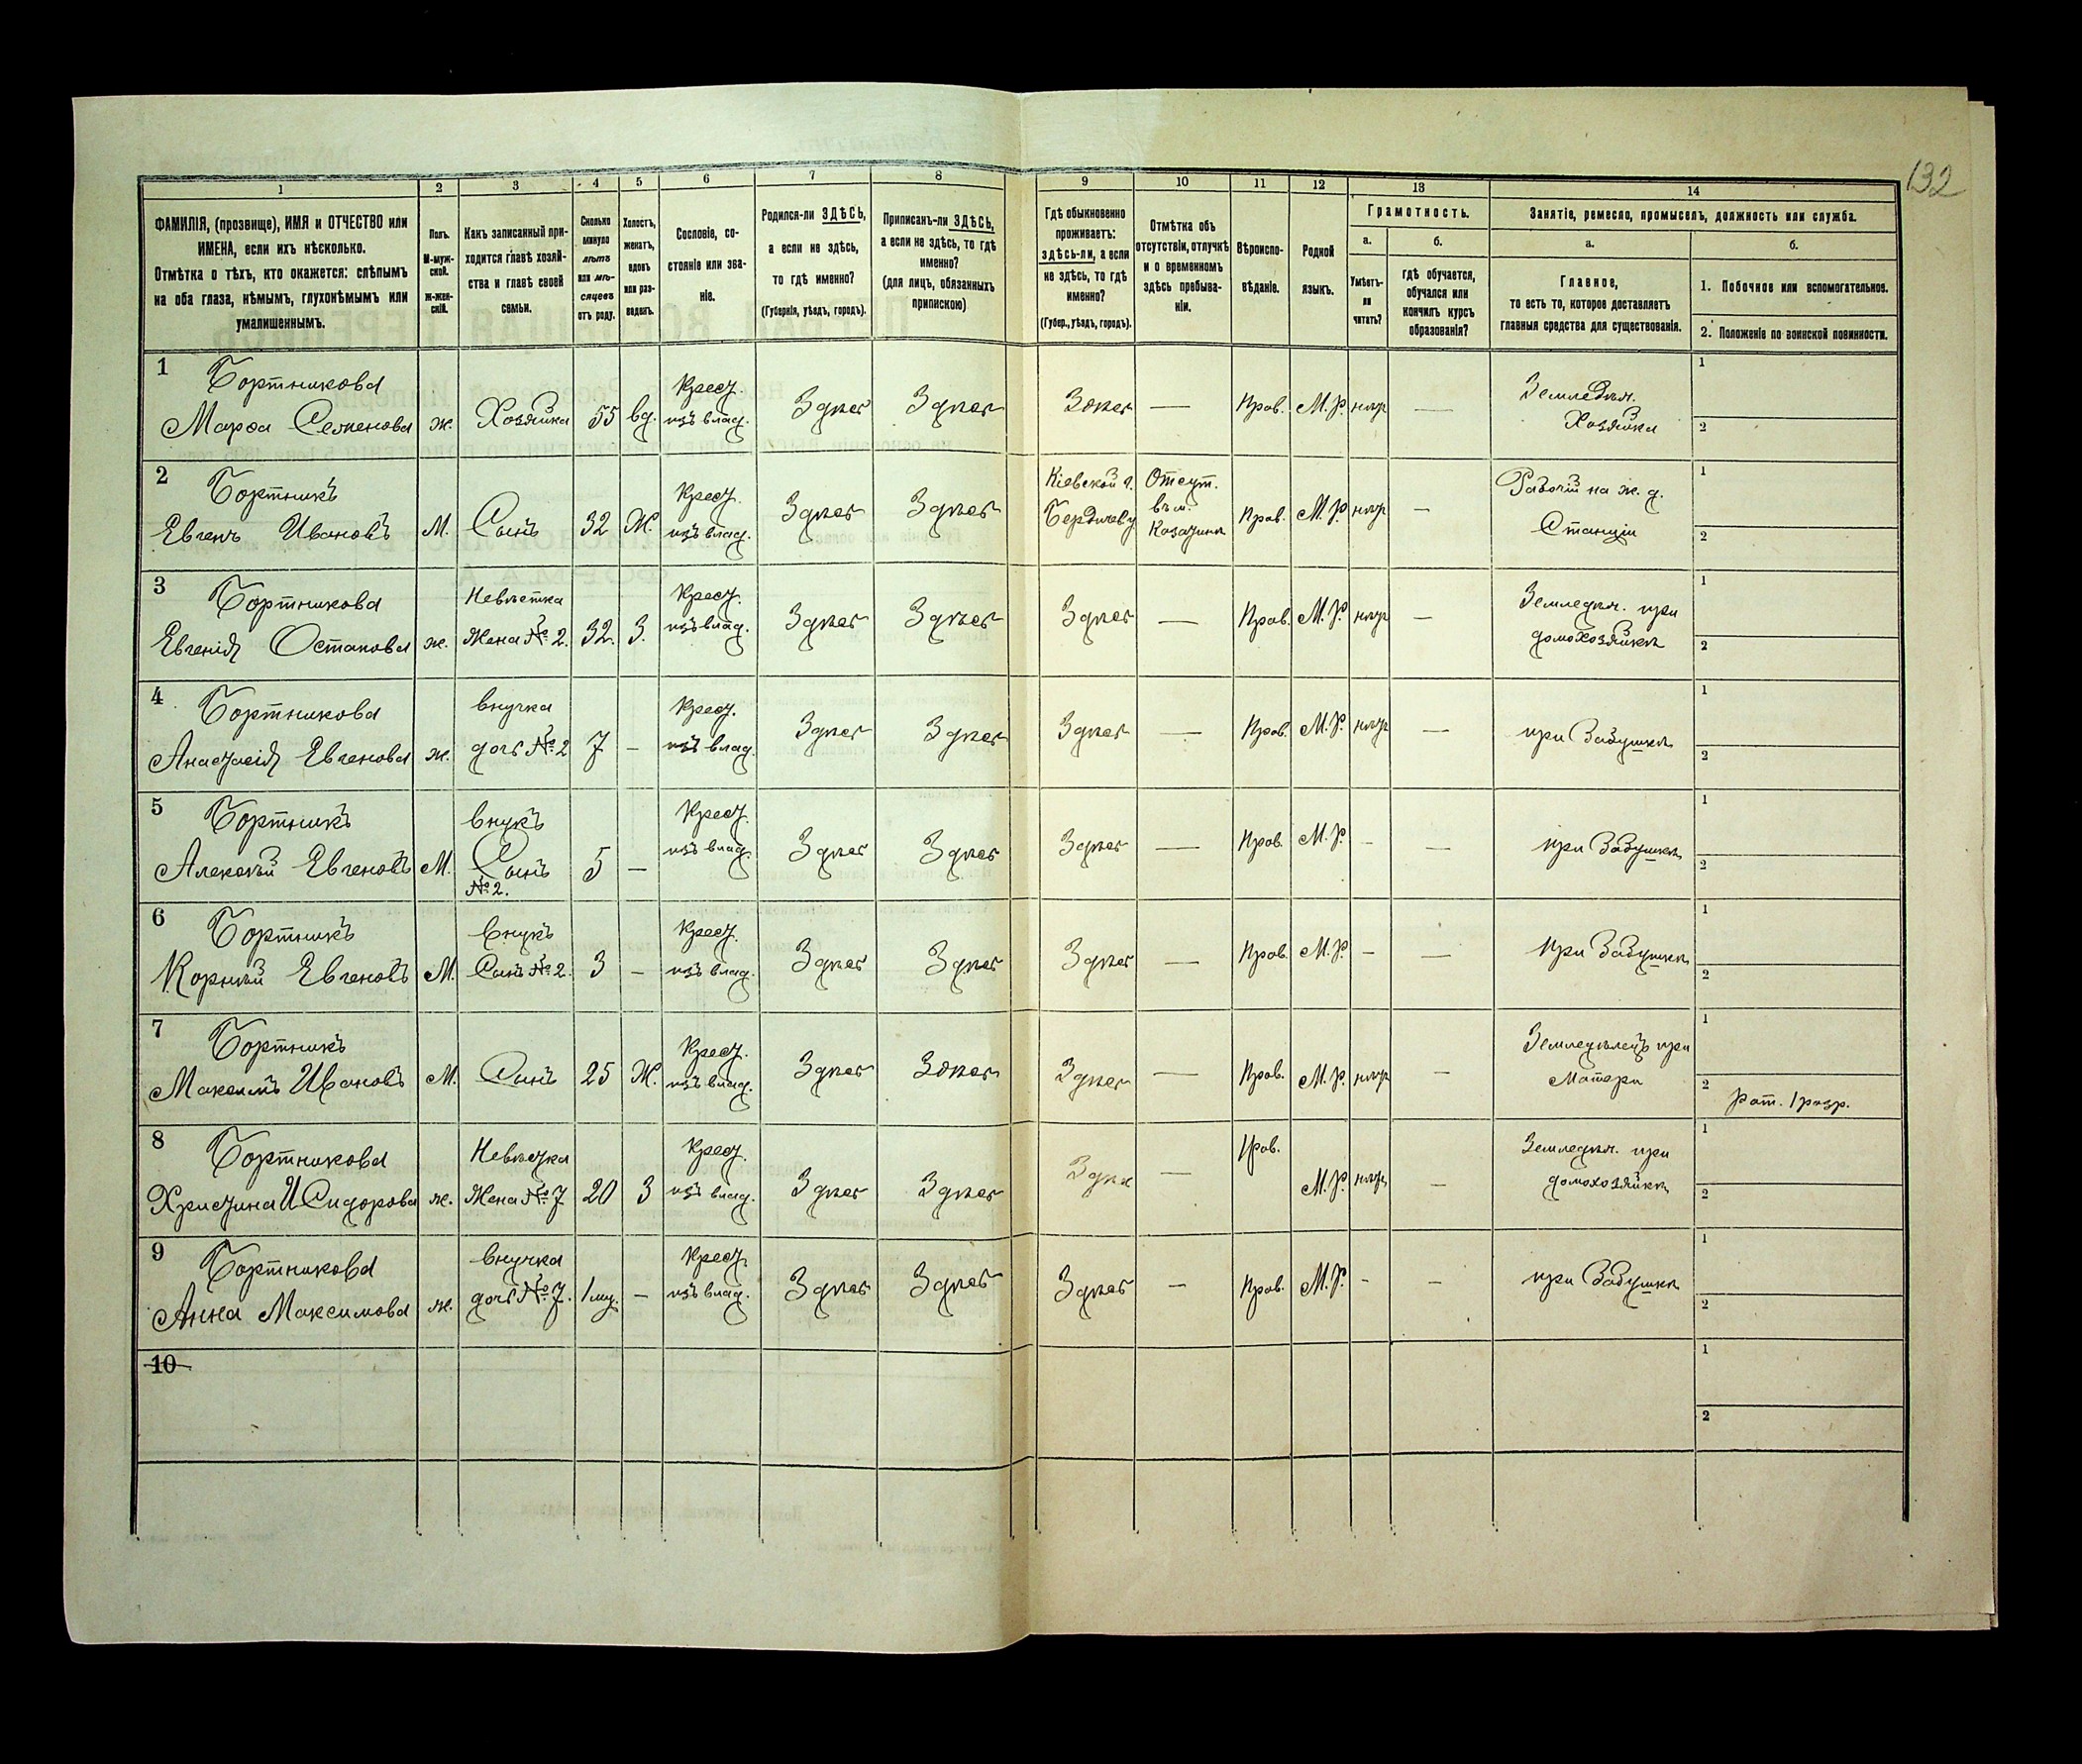 132
1
2
3
4
5
6
7
8
9
10
11
12
13
14
ФАМИЛІЯ, (прозвище), ИМЯ и ОТЧЕСТВО или
ИМЕНА, если ихъ нѣсколько.
Отмѣтка о тѣхъ, кто окажется: слѣпымъ
на оба глаза, нѣмымъ, глухонѣмымъ или
умалишеннымъ.
Полъ.
М-муж-
ской.
Ж-жен-
скій.
Какъ записанный при-
ходится главѣ хозяй-
ства и главѣ своей
семьи.
Сколько
минуло
лѣтъ
или мѣ-
сяцевъ
отъ роду.
Холостъ,
женатъ,
вдовъ
или раз-
веденъ.
Сословіе, со-
стояніе или зва-
ніе.
Родился-ли ЗДѢСЬ,
а если не здѣсь,
то гдѣ именно?
(Губернія, уѣздъ, городъ).
Приписанъ-ли ЗДѢСЬ,
а если не здѣсь, то гдѣ
именно?
(для лицъ, обязанныхъ
припискою)
Гдѣ обыкновенно
проживаетъ:
здѣсь-ли, а если
не здѣсь, то гдѣ
именно?
(Губер., уѣздъ, городъ).
Отмѣтка объ
отсутствіи, отлучкѣ
и о временномъ
здѣсь пребыва-
ніи.
Вѣроиспо-
вѣданіе.
Родной
языкъ.
Грамотность.
а.
Умѣетъ-
ли
читать?
б.
гдѣ обучается,
обучался или
кончилъ курсъ
образованія?
Занятіе, ремесло, промыселъ, должность или служба.
а.
Главное,
то есть то, которое доставляетъ
главныя средства для существованія.
б.
1. Побочное или вспомогательное.
2. Положеніе по воинской повинности.
1
Бортникова
Марфа Семенова
ж.
Хозяйка
55
вд.
Крест.
изъ влад.
Здѣсь
Здѣсь
Здѣсь
—
Прав.
М. Р.
нѣтъ
—
Земледѣл.
Хозяйка
1
2
2
Бортникъ
Евгенъ Ивановъ
М.
Сынъ
32
Ж.
Крест.
изъ влад.
Здѣсь
Здѣсь
Кіевской г.
Бердичеву
Отсут.
въ м.
Прав.
М. Р.
нѣтъ
—
Рабочій на ж. д.
Станціи
1
2
3
Бортникова
Евгенія Остапова
ж.
Невѣстка
Жена № 2.
32.
З.
Крест.
изъ влад.
Здѣсь
Здѣсь
Здѣсь
—
Прав.
М. Р.
нѣтъ
—
Земледѣл. при
домохозяйкѣ
1
2
4
Бортникова
Анастасія Евгенова
ж.
внучка
дочь № 2
7
—
Крест.
изъ влад.
Здѣсь
Здѣсь
Здѣсь
—
Прав.
М. Р.
нѣтъ
—
при Бабушкѣ
1
2
5
Бортникъ
Алексѣй Евгеновъ
М.
внукъ
Сынъ
№ 2.
5
—
Крест.
изъ влад.
Здѣсь
Здѣсь
Здѣсь
—
Прав.
М. Р.
—
—
при Бабушкѣ
1
2
6
Бортникъ
Корнѣй Евгеновъ
М.
Внукъ
Сынъ № 2.
3
—
Крест.
изъ влад.
Здѣсь
Здѣсь
Здѣсь
—
Прав.
М. Р.
—
—
При Бабушкѣ
1
2
7
Бортникъ
Максимъ Ивановъ
М.
Сынъ
25
Ж.
Крест.
изъ влад.
Здѣсь
Здѣсь
Здѣсь
—
Прав.
М. Р.
нѣтъ
—
Земледѣлецъ при
Матери
1
2
рат. 1 разр.
8
Бортникова
Христина Сидорова
ж.
Невѣстка
Жена № 7
20
З
Крест.
изъ влад.
Здѣсь
Здѣсь
—
Прав.
М. Р.
нѣтъ
—
Земледѣл. при
домохозяйкѣ
1
2
9
Бортникова
Анна Максимова
ж.
внучка
дочь № 7.
—
Крест.
изъ влад.
Здѣсь
Здѣсь
Здѣсь
—
Прав.
М. Р.
—
—
при Бабушкѣ
1
2
10
1
2